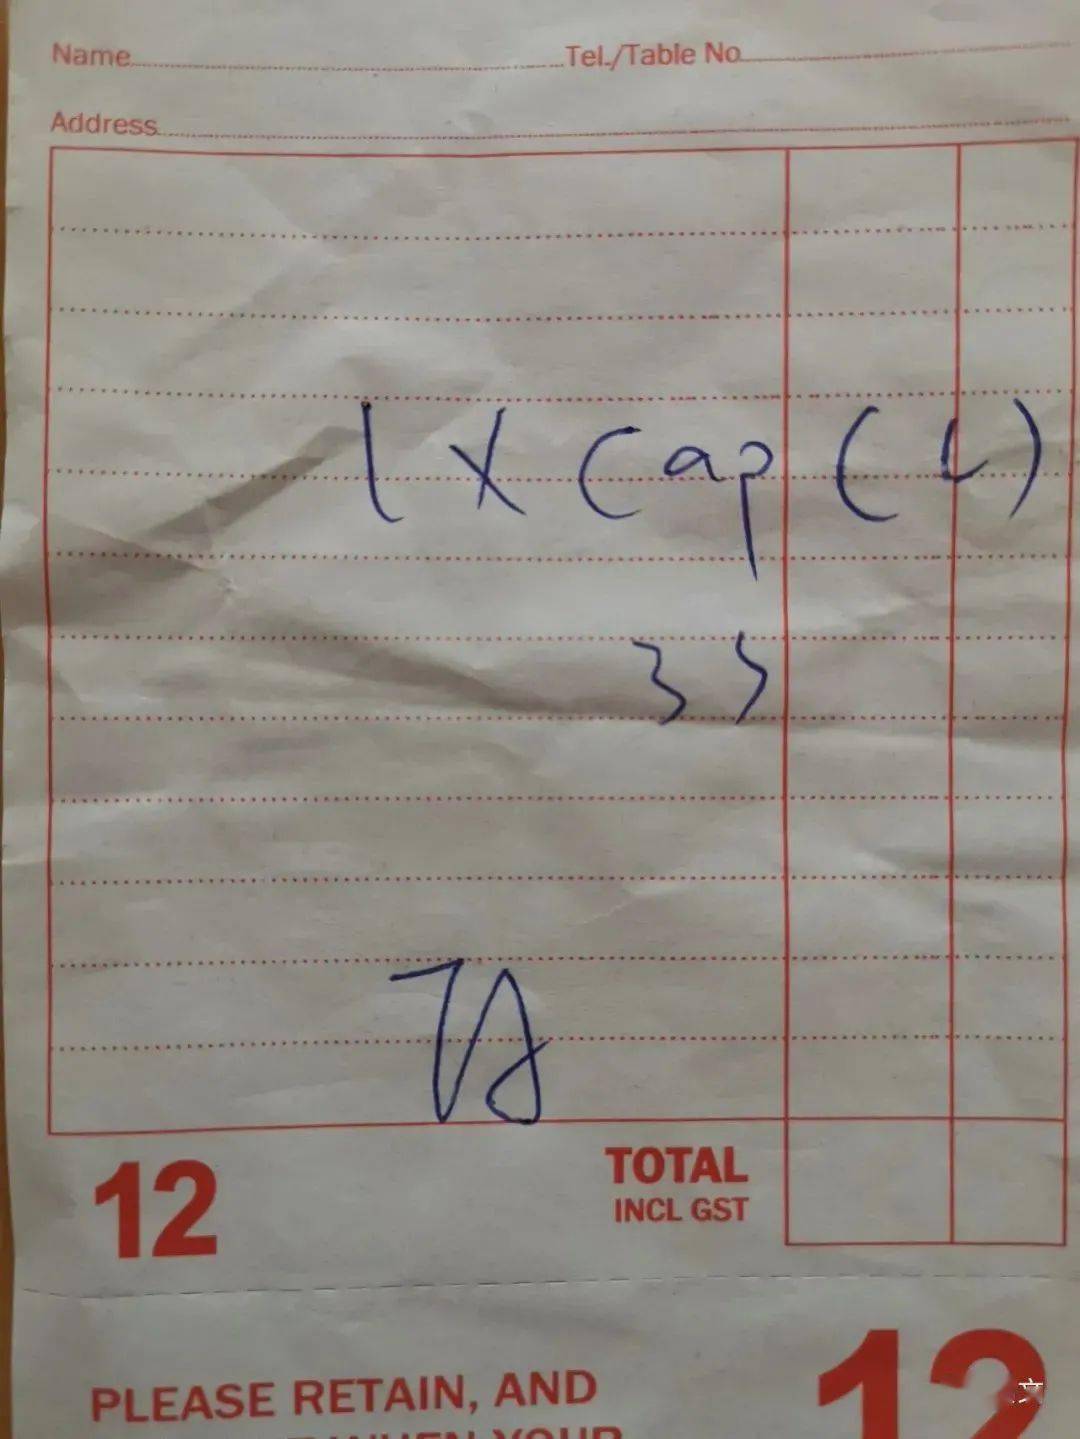 Name
Tel./Table No
Address
1 X Cap (L)
3S
TA
12
TOTAL
INCL GST
PLEASE RETAIN, AND
12